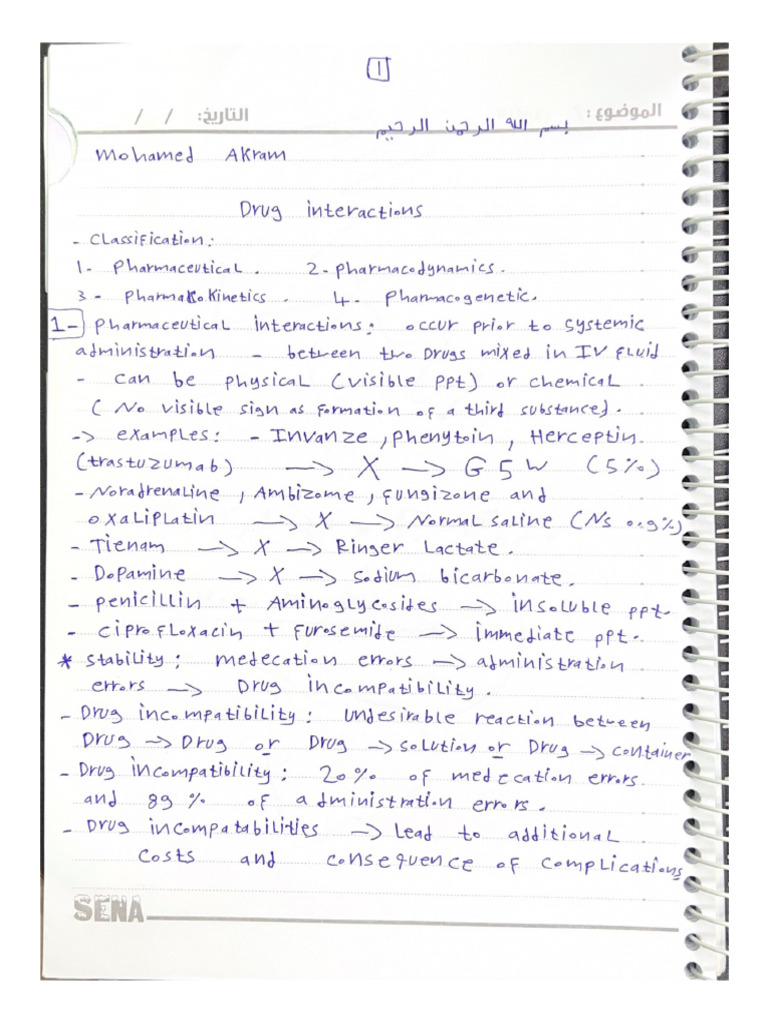 1
الموضوع :
التاريخ: / /
بسم الله الرحمن الرحيم
Mohamed Akram
Drug interactions
- Classification:
1- Pharmaceutical. 2- Pharmacodynamics.
3- Pharmacokinetics. 4- Pharmacogenetic.
1- Pharmaceutical interactions: occur prior to systemic
administration - between two Drugs mixed in IV fluid
- can be physical (visible ppt) or chemical
( No visible sign as formation of a third substance).
-> examples: - Invanze, phenytoin, Herceptin.
(trastuzumab) -> X -> G 5 W (5%)
- Noradrenaline, Ambizome, fungizone and
oxaliplatin -> X -> Normal saline (Ns 0.9%)
- Tienam -> X -> Ringer Lactate.
- Dopamine -> X -> sodium bicarbonate.
- penicillin + Aminoglycosides -> insoluble ppt.
- ciprofloxacin + furosemide -> immediate ppt.
* stability: medecation errors -> administration
errors -> Drug incompatibility.
- Drug incompatibility: undesirable reaction between
Drug -> Drug or Drug -> solution or Drug -> container
- Drug incompatibility: 20% of medecation errors
and 89% of administration errors.
- Drug incompatabilities -> lead to additional
costs and consequence of complications
SENA